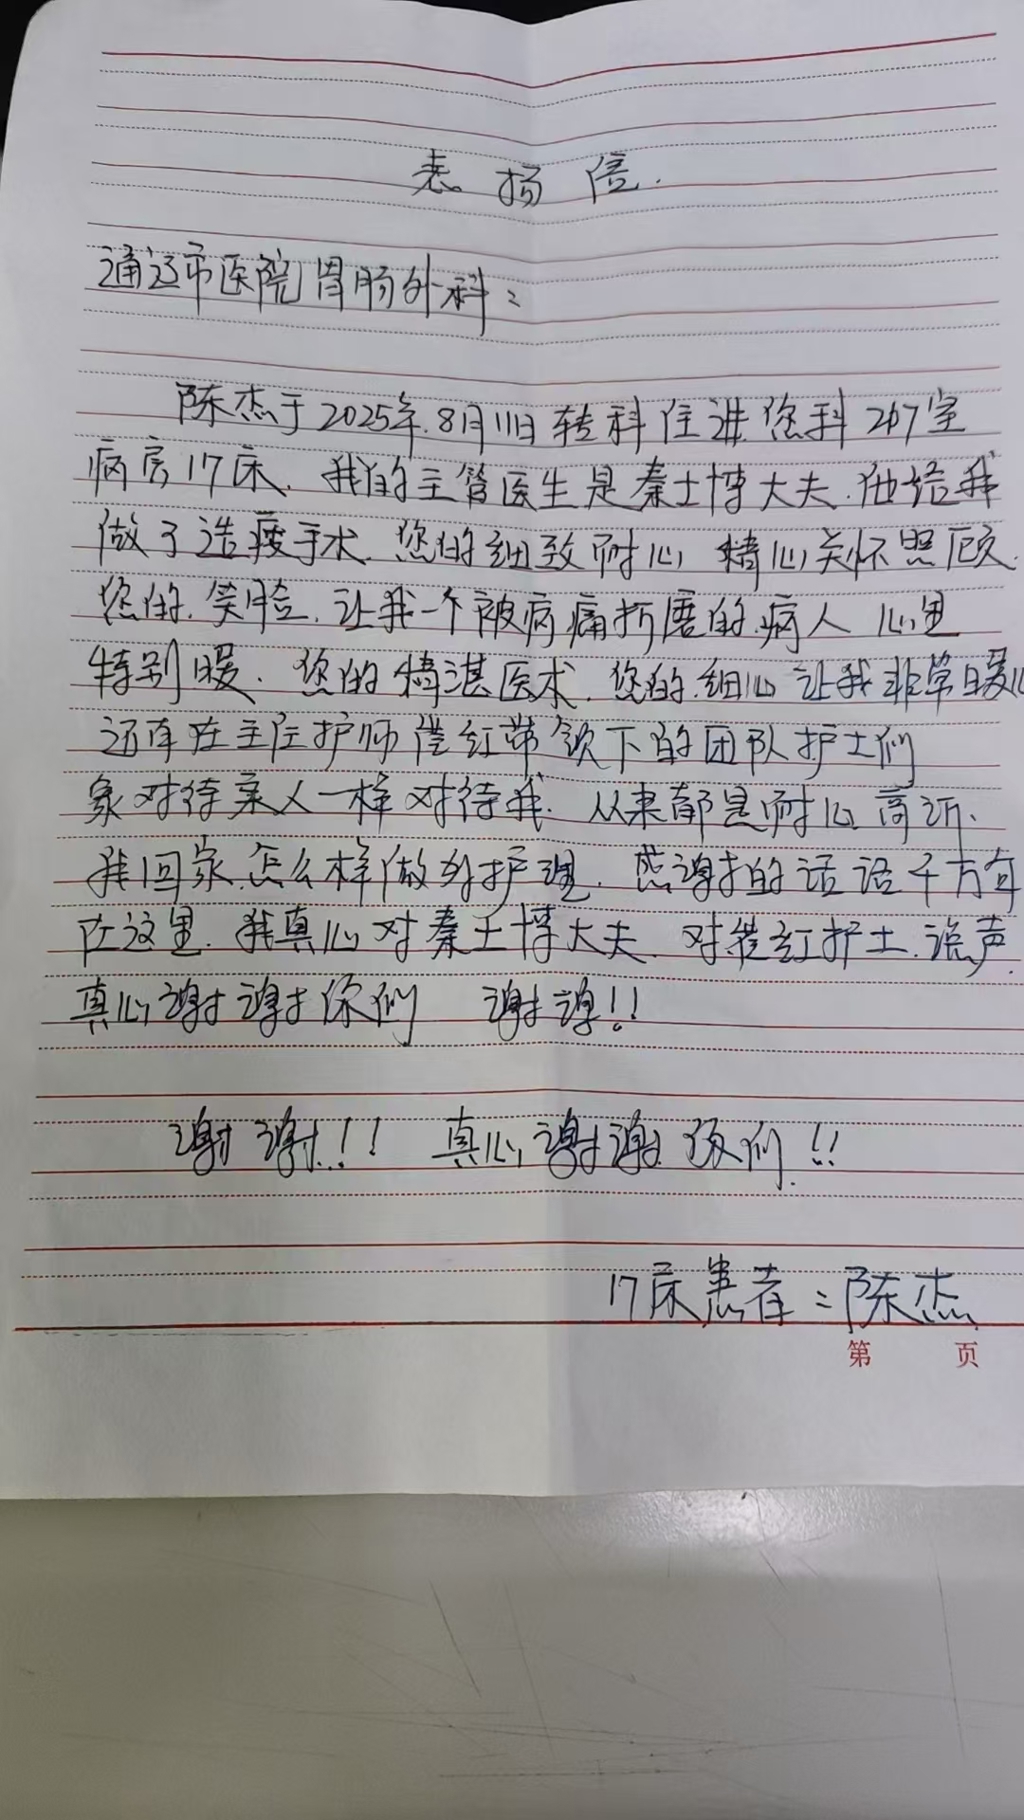 表扬信.
通辽市医院胃肠外科:
陈杰于2025年.8月11日转科住进您科267室
病房17床、我的主管医生是秦士博大夫.他给我
做了造瘘手术.您的细致耐心 精心关怀照顾.
您的.笑脸.让我一个被病痛折磨的.病人 心里
特别暖.您的精湛医术.您的.细心让我非常暖心
还有在主任护师 红带领下的团队护士们
象对待亲人一样对待我.从来都是耐心
我回家.怎么样做好护理.感谢的话语千万句
在这里.我真心对秦士博大夫.对 红护士.说声.
真心谢谢你们 谢谢!!
谢谢!! 真心谢谢你们!!
17床患者:陈杰
第 页